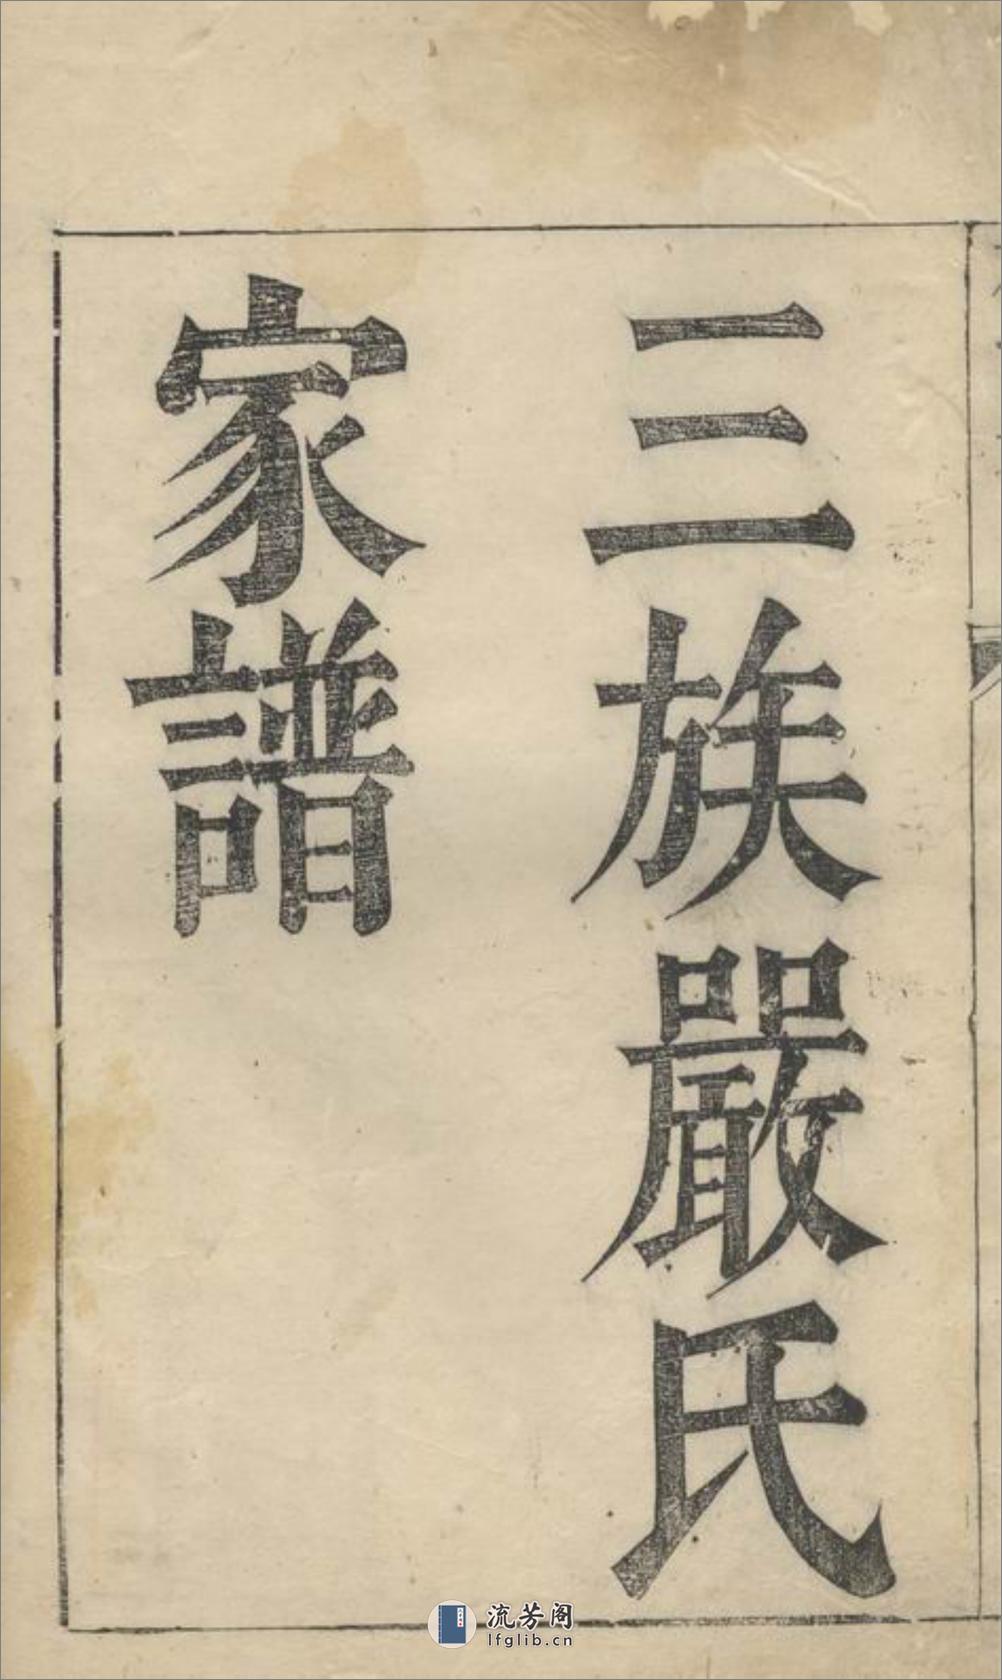 三族嚴氏
家譜
流芳阁
lfglib.cn